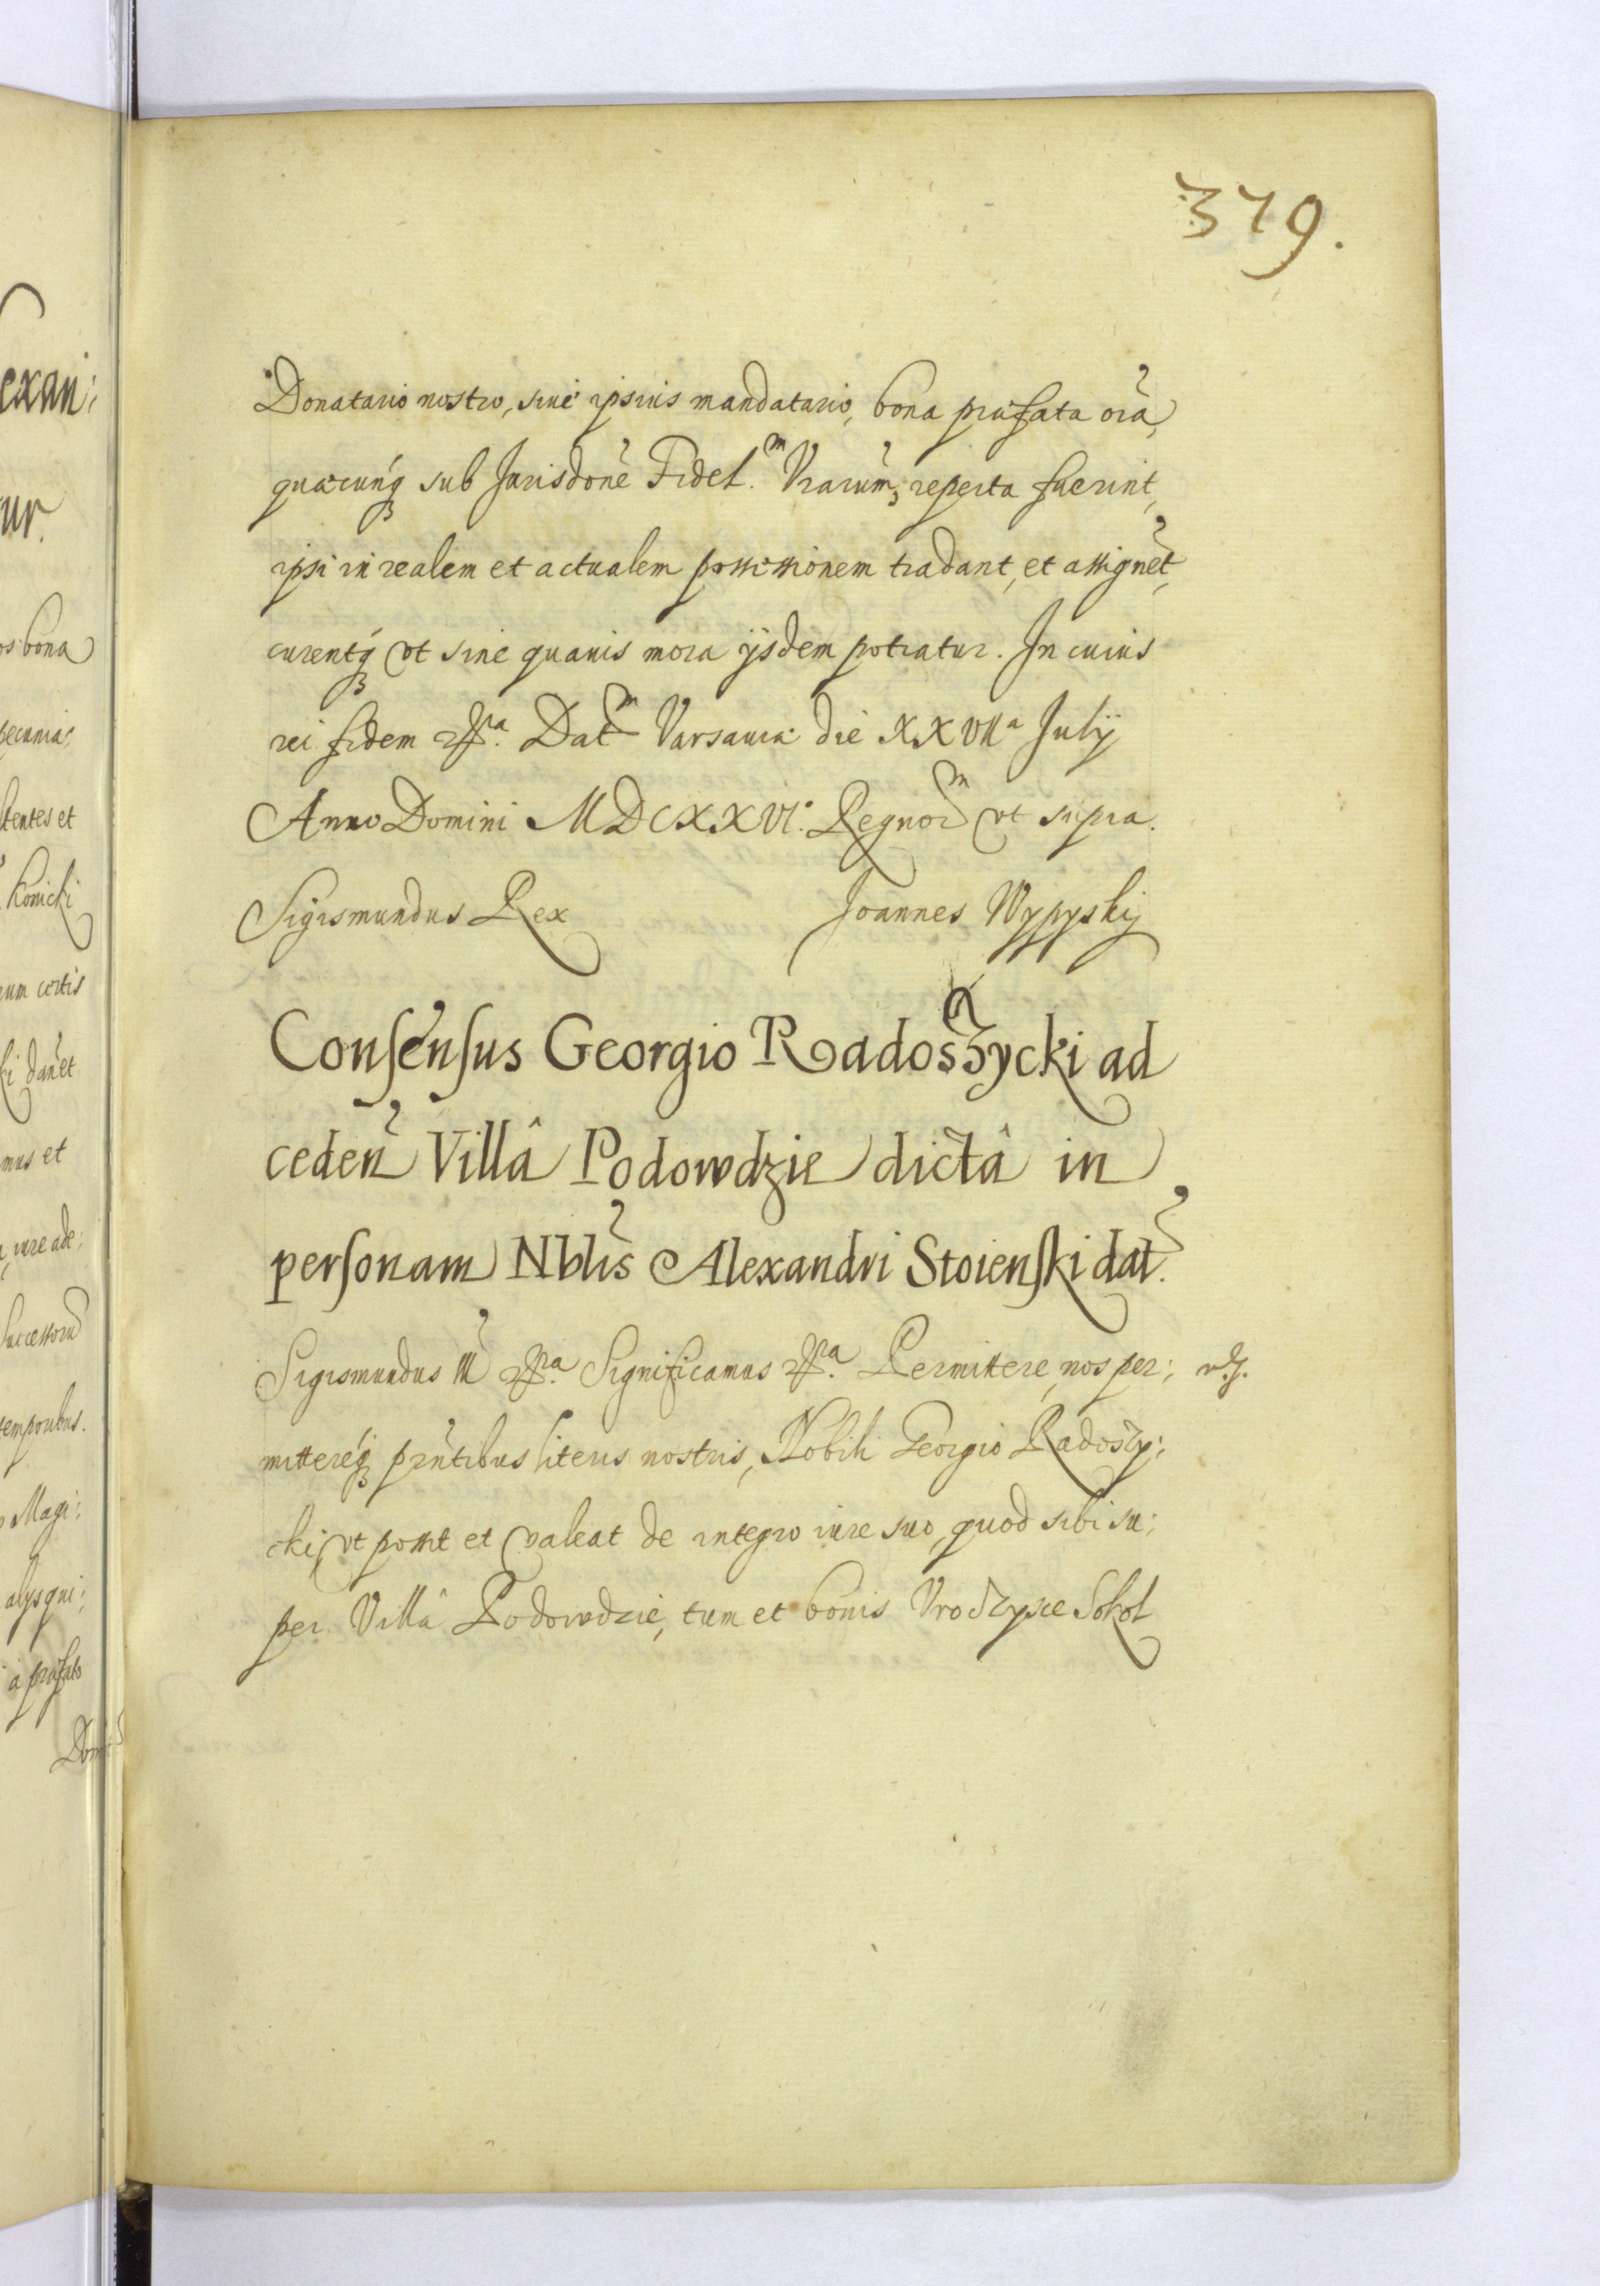 379.
Donatario nostro, siue ipsius mandatario, bona præfata oĩa,
quæcunq̃ sub Jurisdonẽ Fidel.m Vrarum̃, reperta fuerint,
ipsi in realem et actualem possessionem tradant, et assignẽt,
curentq̃ vt sine quauis mora ijsdem potiatur. In cuius
rei fidem etc.a Dat̃m Varsauiæ die XXVIIa Julij
Anno Domini MDCXXVI.o Regnor̃m vt supra.
Sigismundus Rex Joannes Wypyskij
Consensus Georgio Radoszycki ad
ceden̄ Villâ Podowdzie dictâ in
personam Nblis̃ Alexandri Stoienski dat̃.
Sigismundus III etc.a Significamus etc.a Permittere, nos per:
mittereq̃ prñtibus literis nostris, Nobili Georgio Radoszy:
cki, vt possit et valeat de integro iure suo, quod sibi su:
per Villâ Podowdzie, tum et bonis Vroczysce Sokol
exan:
ur
os bona
pecunia:
tentes et
konicki
rum certis
danẽt
mus et
iure ade:
successorũ
temporibus.
Magi:
alysqui:
a præfato